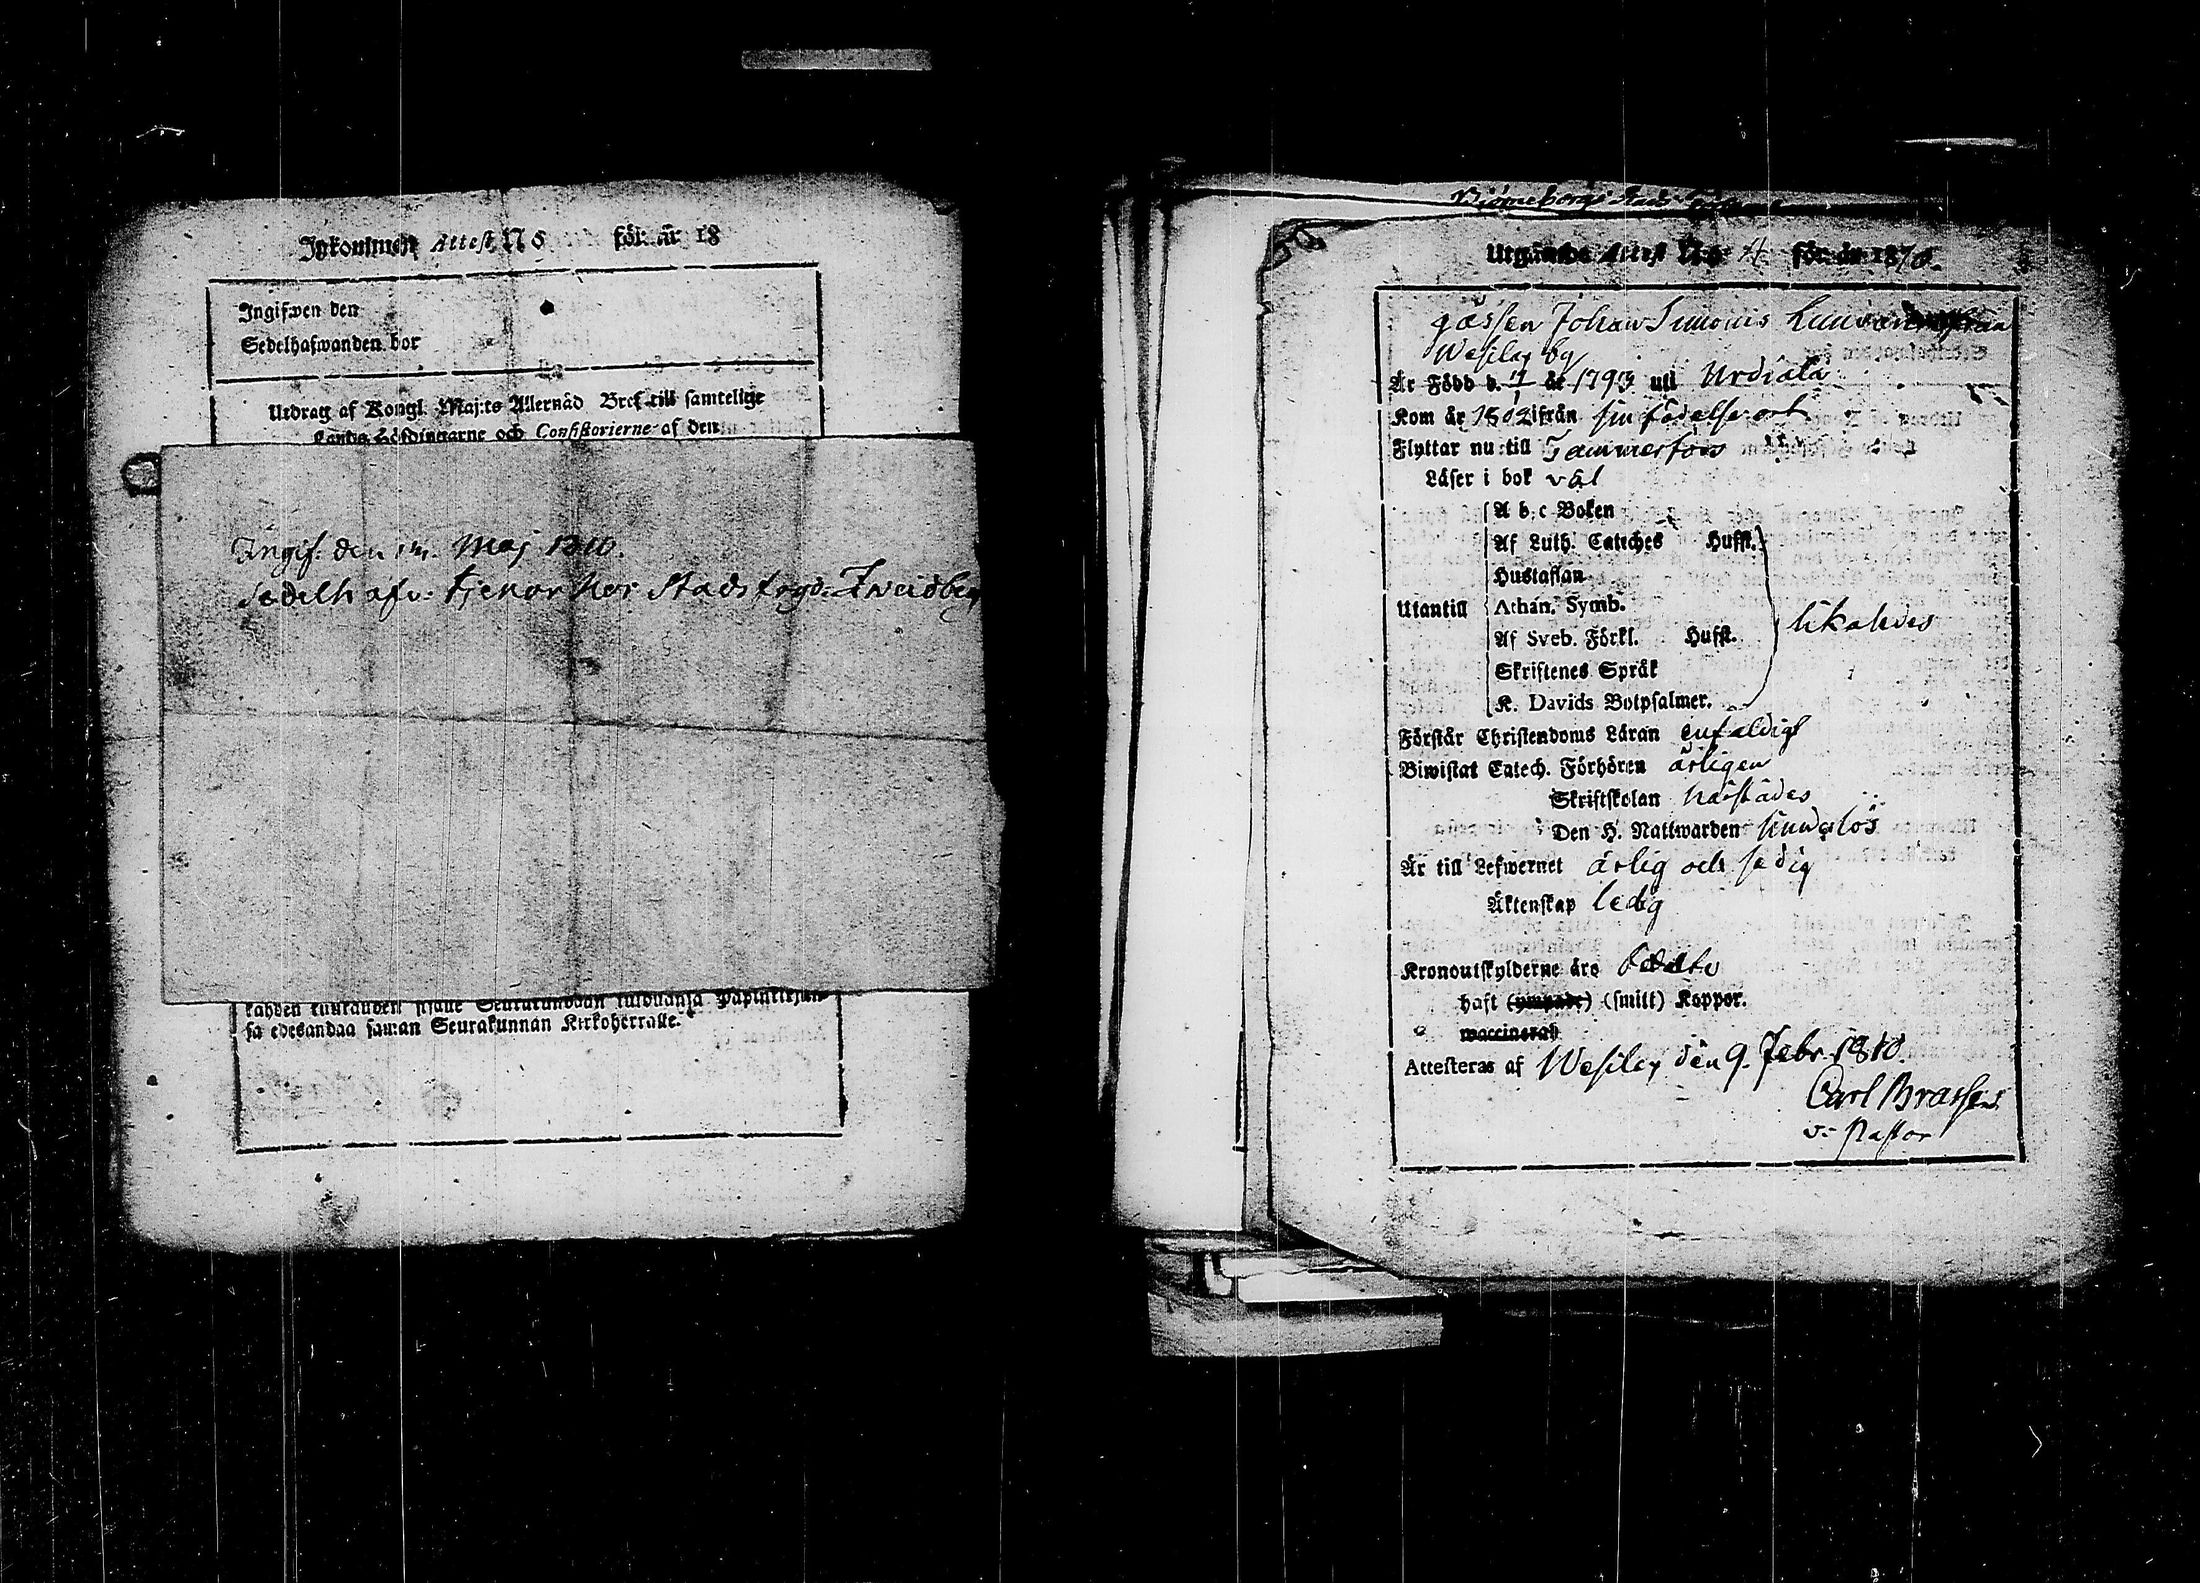 Inkommen Attest N 5 för år 18
Ingifwen den
Sedelhafwanden bor
Utdrag af Kongl. Maj:ts Allernåd Bref till samtelige
Consistorierne af den
Ingif: den Maj 1810.
Sedelhafv: tjenar hos Stadsfogd:
sa edesandaa saman Seurakunnan Kirkoherralle.
Biörneborgs
Utgående Attest No 4 för år 1810.
gåssen Johan Simonis från
Wesilax by
Är Född d. år 1793 uti Urdiala
Kom år 1802 ifrån sin födelse ort
Flyttar nu till Tammerfors
Läser i bok väl
A b c Boken
Af Luth. Catches Hufst.
Hustaflan
Utantill Athan. Symb. likaledes
Af Sveb. Förkl. Hufst.
Skriftenes Språk
K. Davids Botpsalmer.
Förstår Christendoms Läran enfaldigt
Biwistat Catech. Förhören årligen
Skriftskolan
Den H. Nattwarden
Är till Lefwernet ärlig och sedig
Äktenskap ledig
Kronoutskylderne äro
haft (ympade) (smitt) Koppor.
waccinerad
Attesteras af Wesilax den 9. Febr. 1810.
Carl
v: Pastor